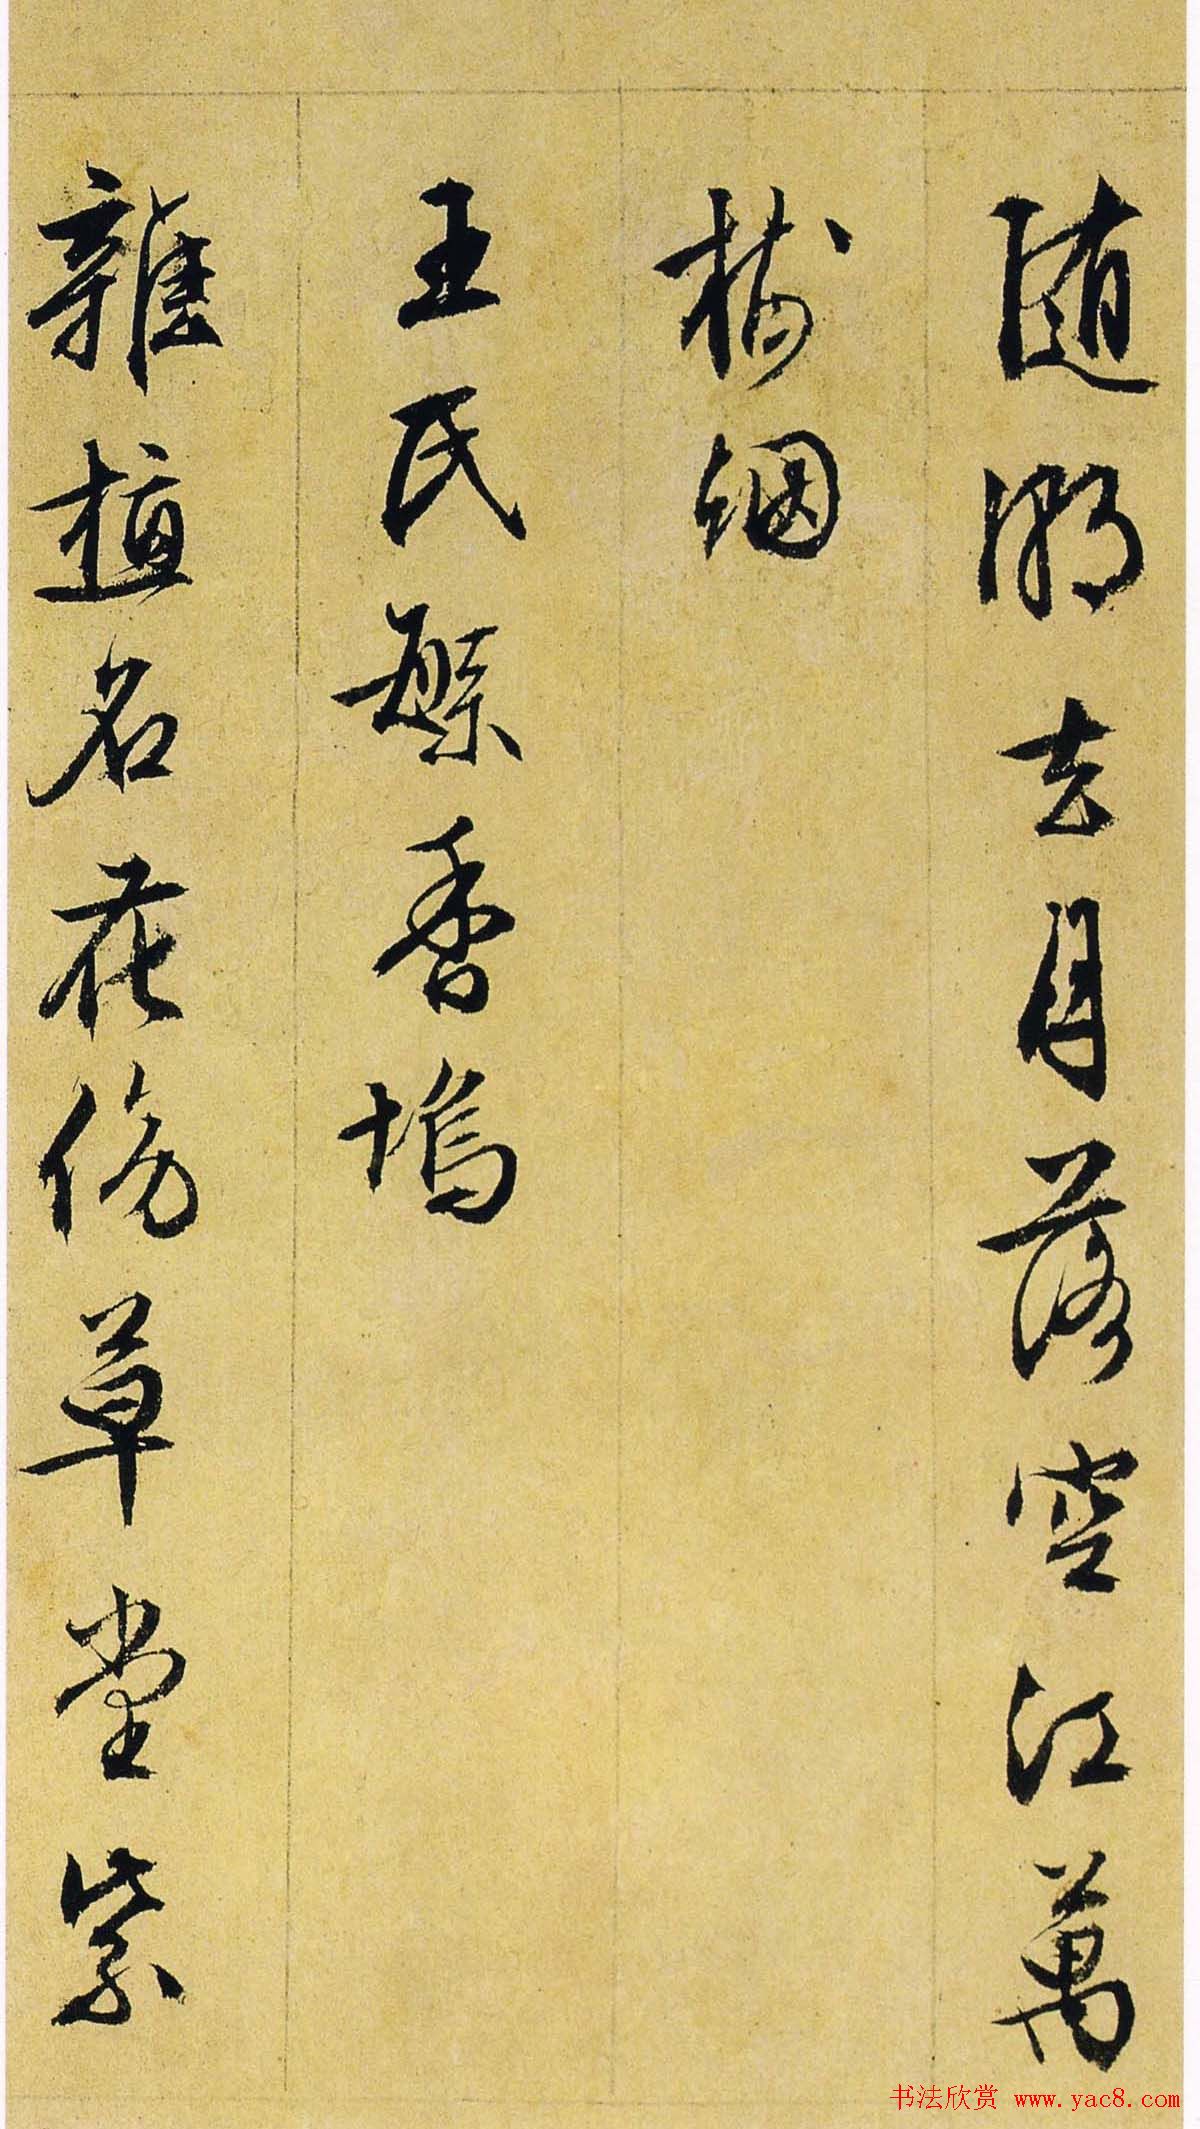 随潮去月落空江萬
樹烟
王氏繁香塢
雜植名花傍草堂紫
书法欣赏 www.yac8.com